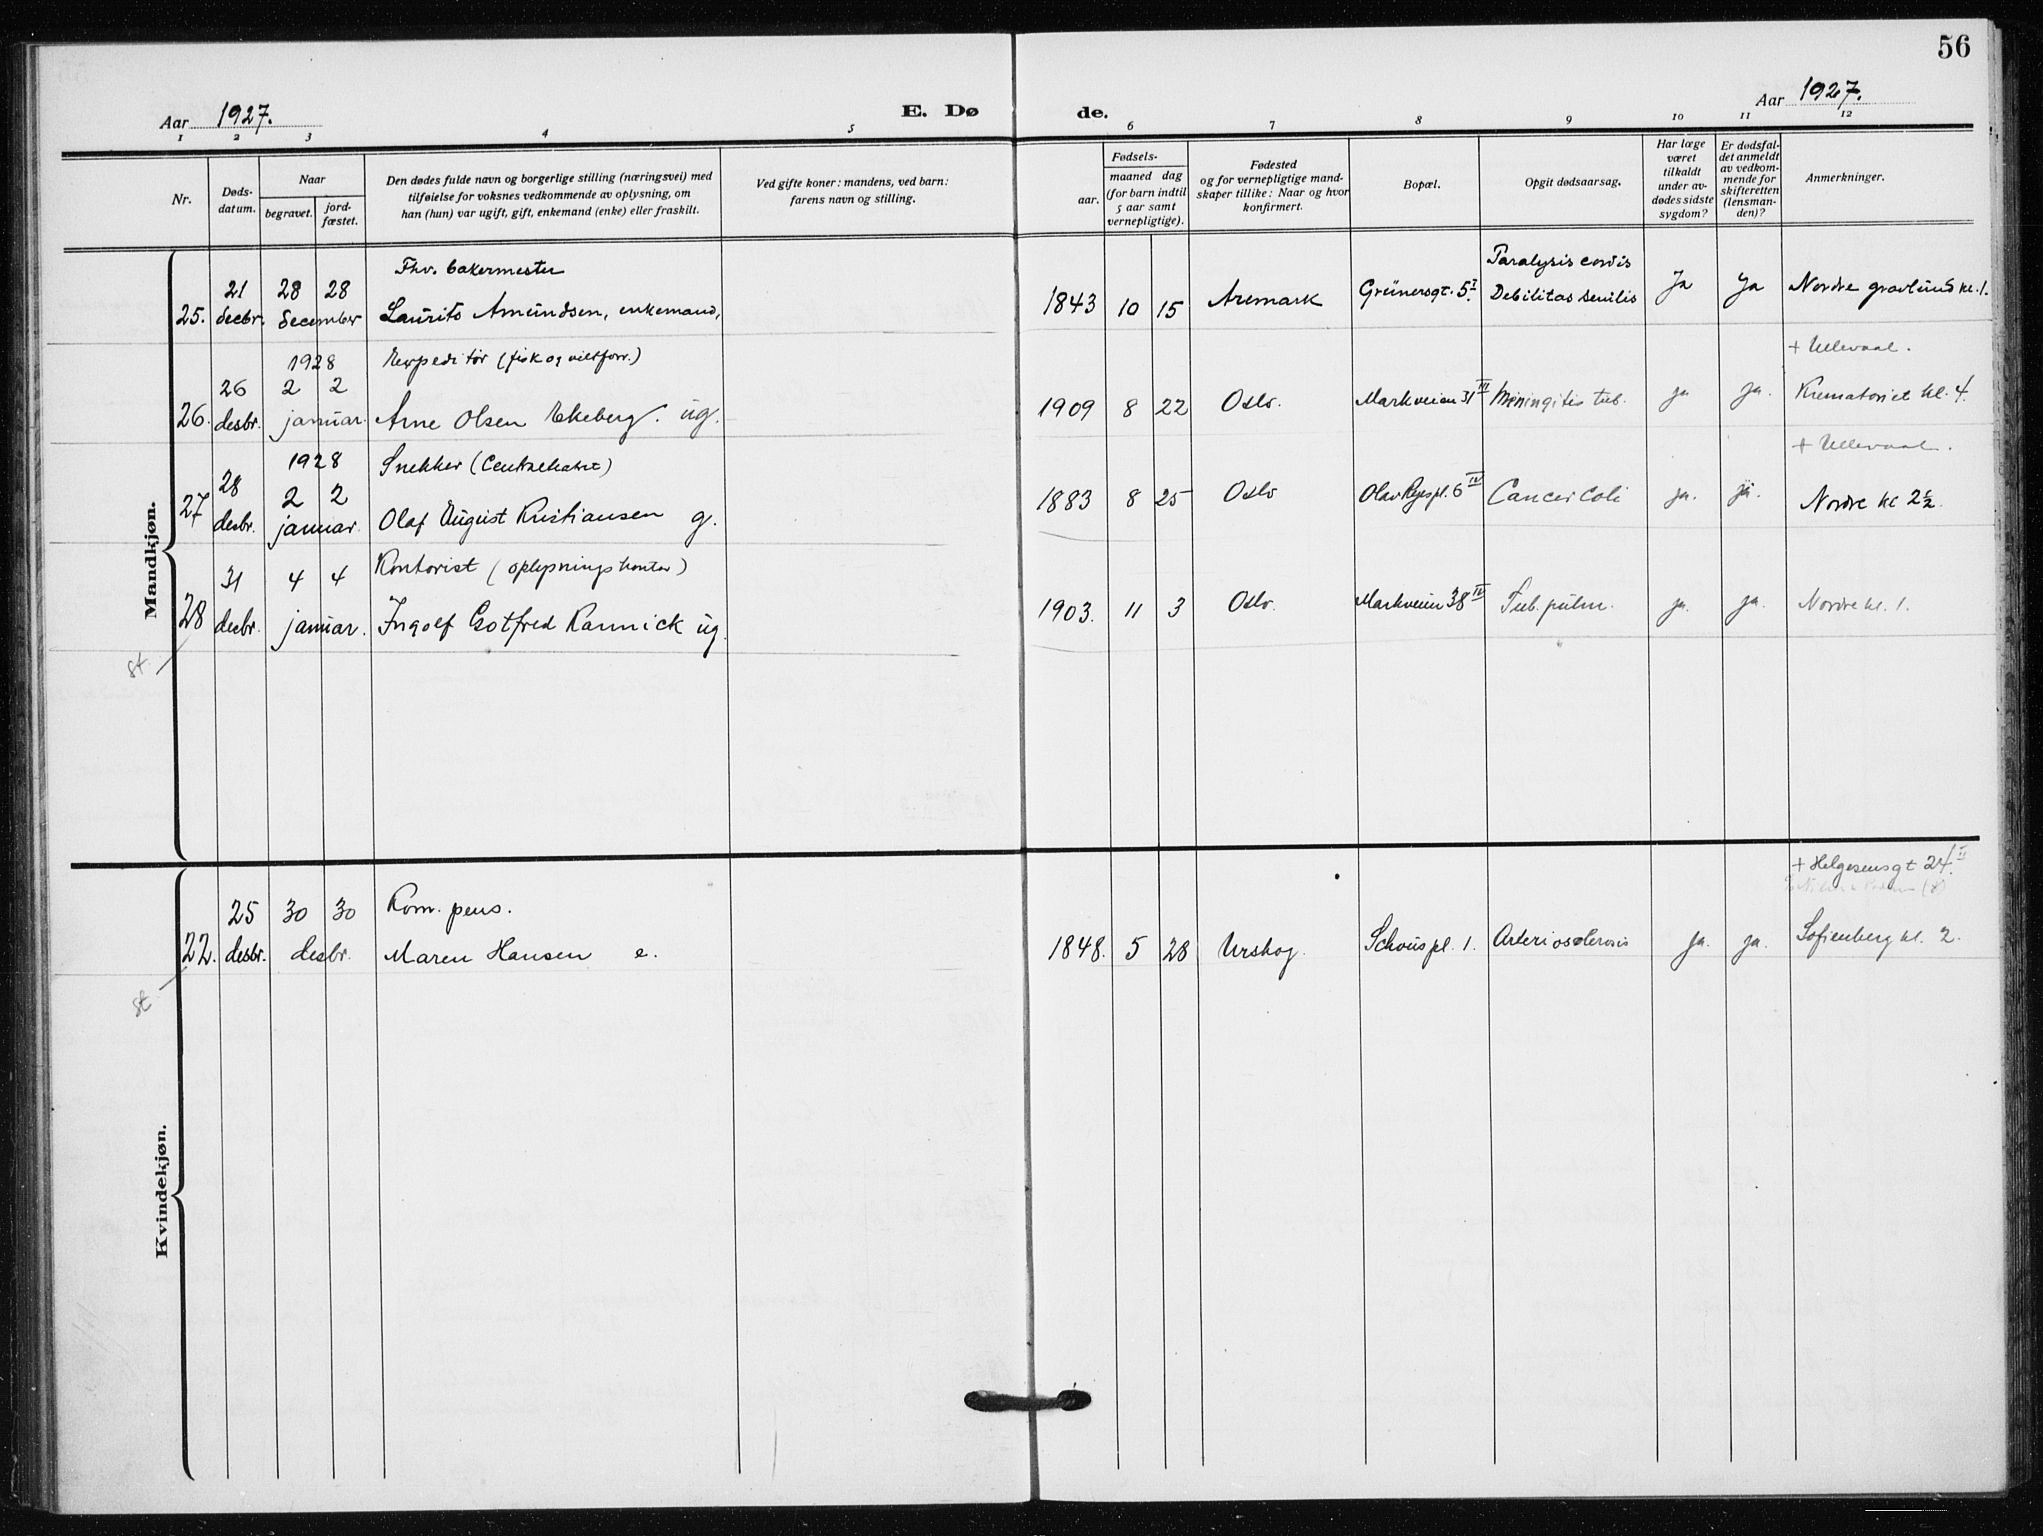 56
Aar 1927.
E. Dø
de.
Aar 1927.
1 2 3 4 5 6 7 8 9 10 11 12
Nr.
Døds-
datum.
Naar
begravet.
jord-
fæstet.
Den dødes fulde navn og borgerlige stilling (næringsvei) med
tilføielse for voksnes vedkommende av oplysning, om
han (hun) var ugift, gift, enkemand (enke) eller fraskilt.
Ved gifte koner: mandens, ved barn:
farens navn og stilling.
Fødsels-
aar.
maaned dag
(for barn indtil
5 aar samt
vernepligtige).
Fødested
og for vernepligtige mand-
skaper tillike: Naar og hvor
konfirmert.
Bopæl.
Opgit dødsaarsag.
Har læge
været
tilkaldt
under av-
dødes sidste
sygdom?
Er dødsfal-
det anmeldt
av vedkom-
mende for
skifteretten
(lensman-
den)?
Anmerkninger.
Mandkjøn.
Fhv. bakermester
Paralysis cordis
21 28 28
25. decbr. december Laurits Amundsen, enkemand, 1843 10 15 Aremark Grünersgt. 5 I Debilitas senilis Ja Ja Nordre gravlund kl. 1.
1928 Expeditør (fisk og viltforr.)
+ Ullevaal.
26 2 2
26. desbr. januar. Arne Olsen Ekeberg. ug. 1909 8 22 Oslo. Markveien 31 III Meningitis tub. ja ja. Krematoriet kl. 4.
1928 Snekker
+ Ullevaal.
28 2 2
27 desbr. januar. Olaf August Kristiansen g. 1883 8 25 Oslo Olav Ryespl. 6 IV Cancer Coli ja. ja. Nordre kl 2½.
31 4 4 Kontorist (oplysningskontor)
28 desbr. januar. Ingolf Gotfred Rannick ug. 1903. 11 3 Oslo. Markveien 38 IV Tub. pulm. ja. ja. Nordre kl. 1.
st.
Kvindekjøn.
+ Helgesensgt 24. II
25 30 30 Kom. pens.
22. desbr. desbr. Maren Hansen e. 1848. 5 28 Urskog. Schouspl. 1. Arteriosclerosis ja. ja. Sofienberg kl. 2.
st.